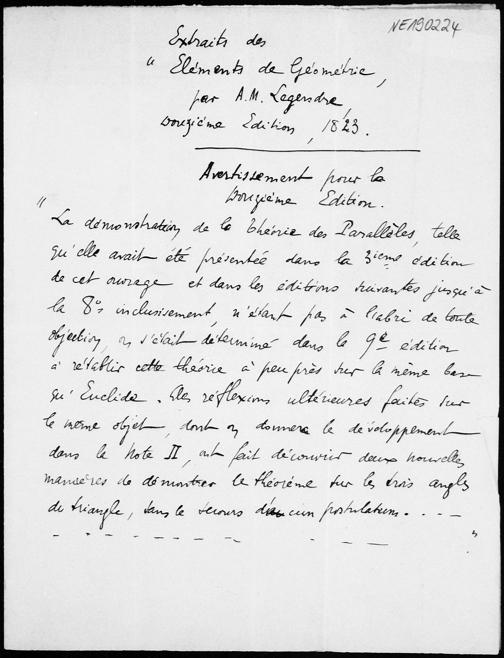 NE190224
Extraits des
" Eléments de Géométrie,
par A.M. Legendre,
Douzième Edition, 1823.
Avertissement pour la
Douzième Edition.
" La démonstration de la théorie des Parallèles, telle
qu'elle avait été présentée dans la 3ieme édition
de cet ouvrage et dans les éditions suivantes jusqu'à
la 8e inclusisement, n'étant pas à l'abri de toute
objection, on s'était déterminé dans la 9e édition
à rétablir cette théorie à peu près sur la même base
qu'Euclide. Des réflexions ultérieures faites sur
le même objet, dont on donnera le développement
dans la Note II, ont fait découvrir deux nouvelles
manières de démontrer le théorème sur les trois angles
du triangle, sans le secours d'aucun postulatum. . . . -
- - - - - - - - - "